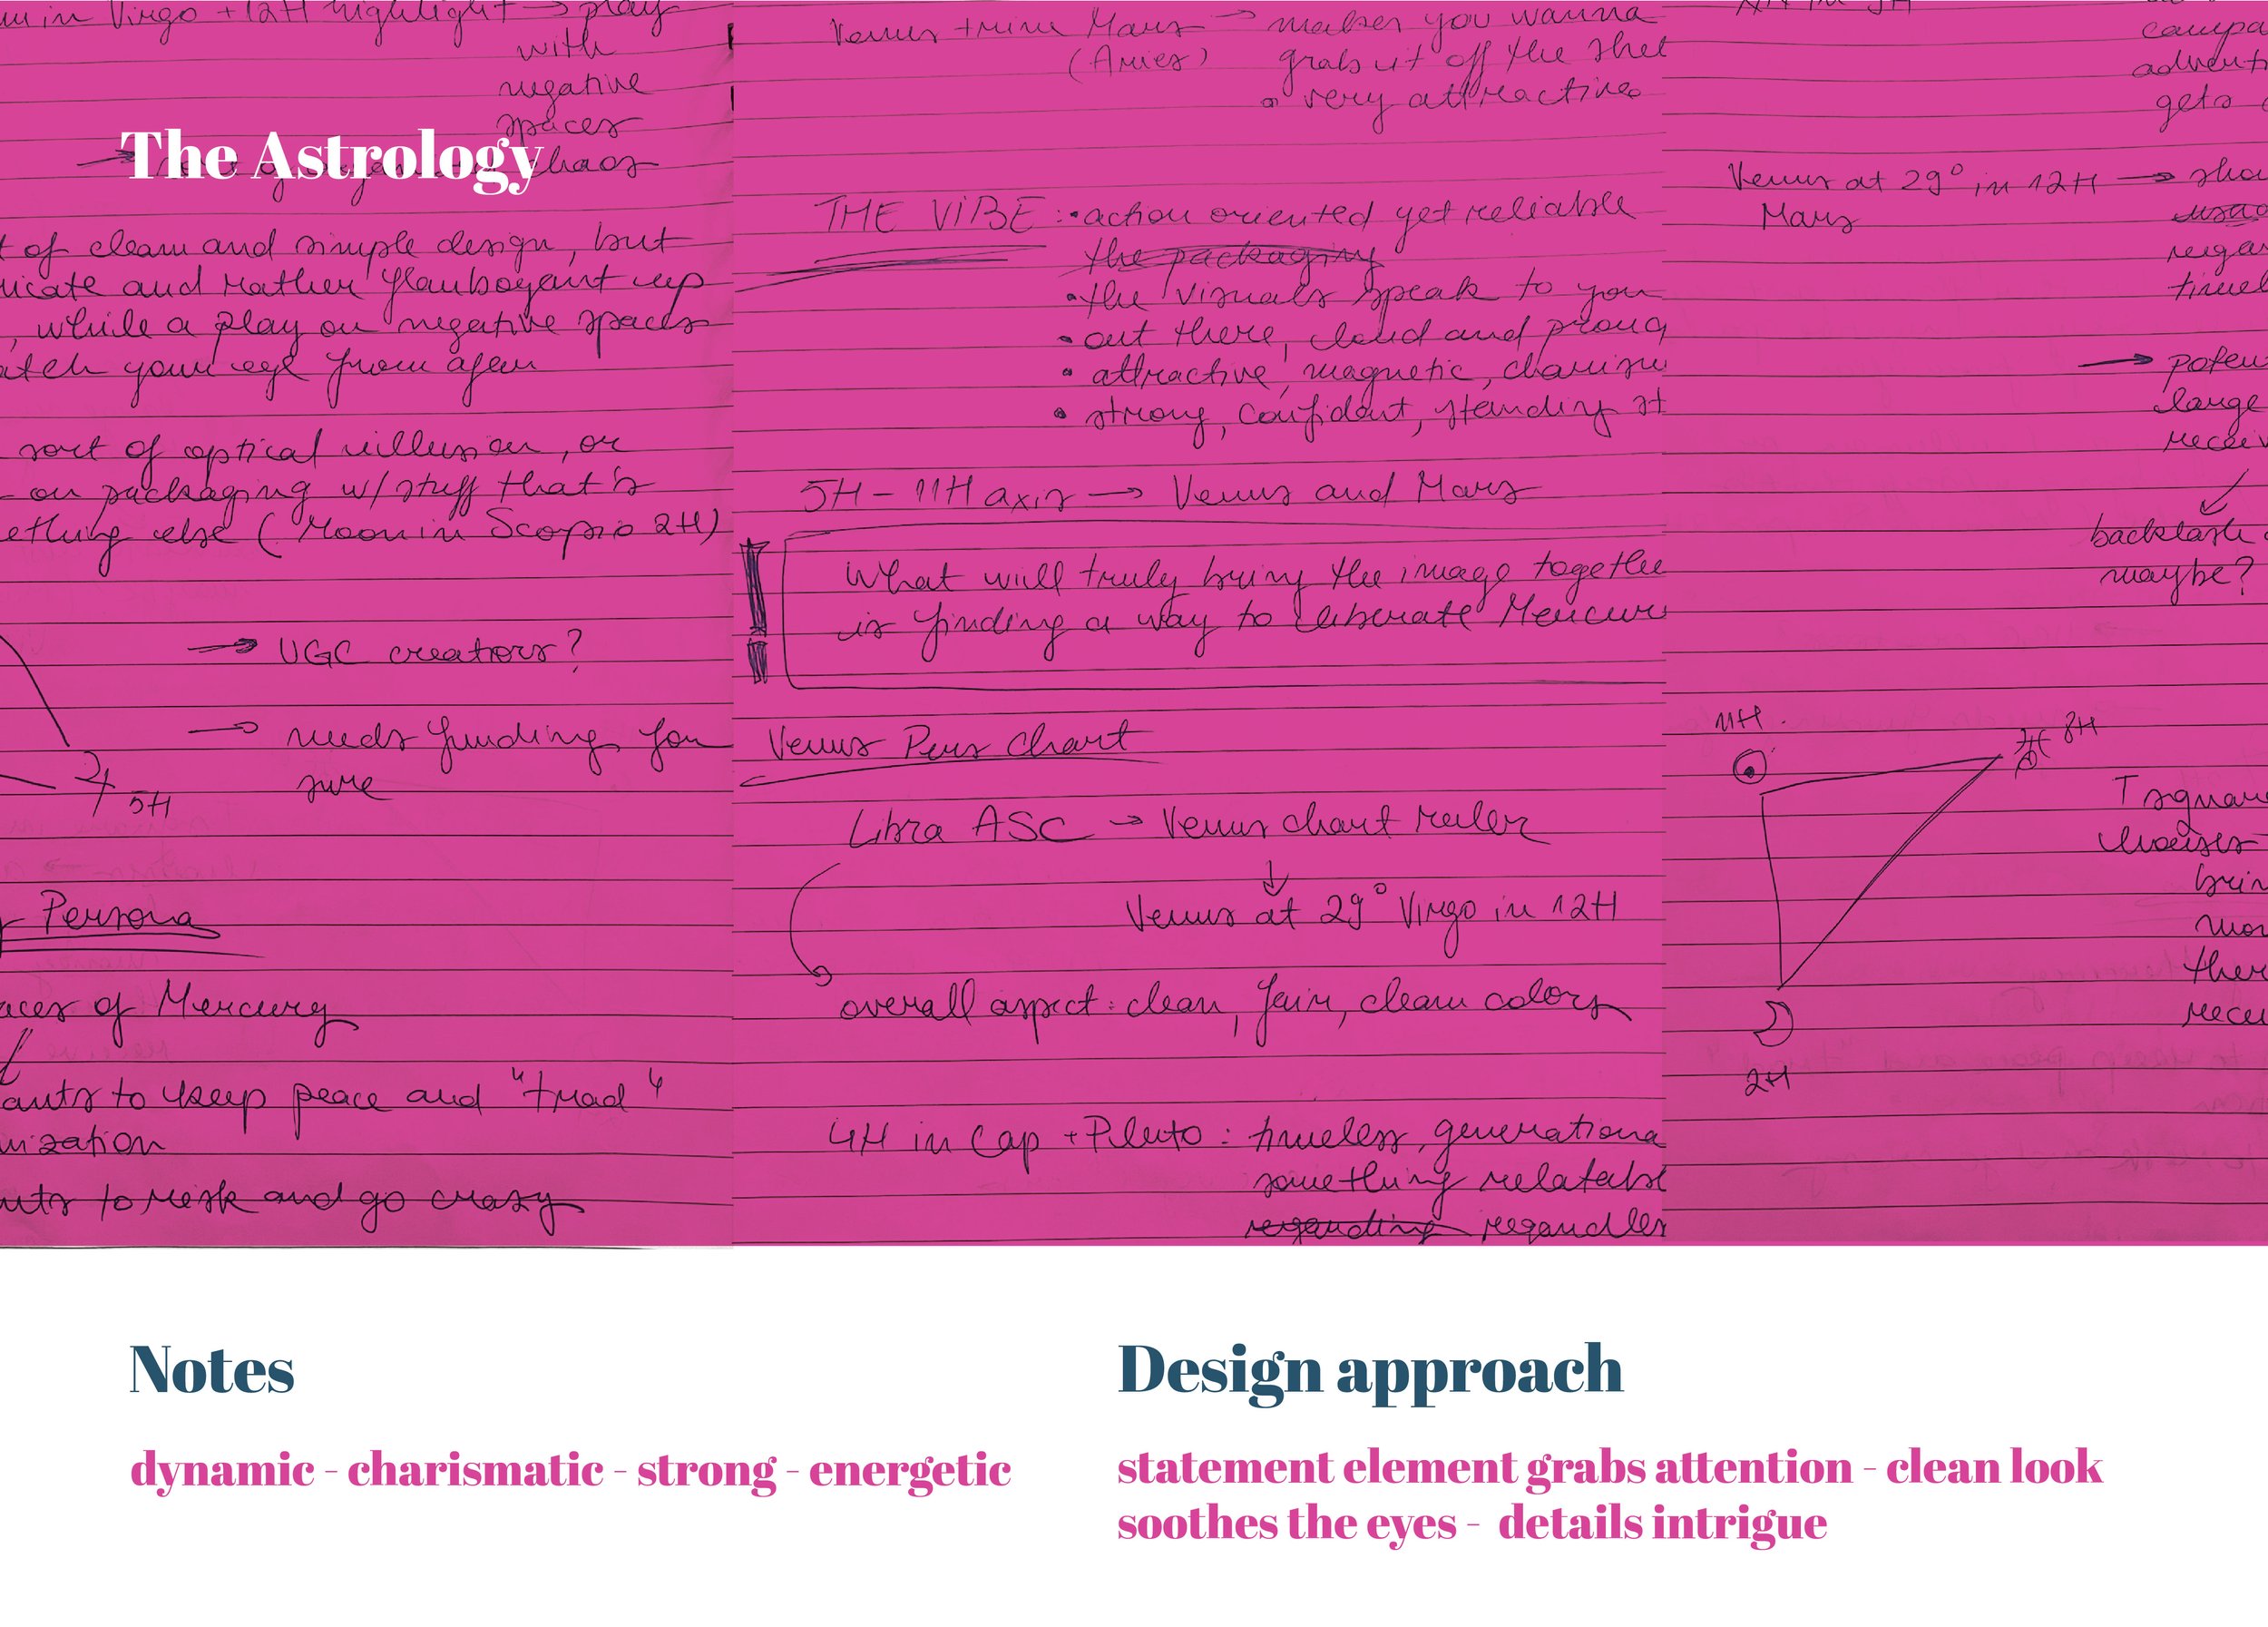 The Astrology
in Virgo + 12H highlight → play
with
negative
spaces
→ sort of organized chaos
of clean and simple design, but
and rather flamboyant up
, while a play on negative spaces
your eye from afar
sort of optical illusion, or
on packaging w/ stuff that's
else (Moon in Scorpio 2H)
→ UGC creators?
→ needs funding for
sure
5H
Persona
of Mercury
to keep peace and "trad"
to risk and go crazy
Venus trine Mars → makes you wanna
(Aries) grab it off the shel
very attractive
THE VIBE : • action oriented yet reliable
the packaging
• the visuals speak to you
• out there, loud and proud
• attractive, magnetic, charism
• strong, confident, standing st
5H - 11H axis → Venus and Mars
What will truly bring the image together
is finding a way to liberate Mercur
Venus Pers Chart
Libra ASC → Venus chart ruler
↓
Venus at 29° Virgo in 12H
overall aspect: clean, fair, clean colors
4H in Cap + Pluto: timeless, generationa
something relatabl
regarding regardles
campa
advent
gets
Venus at 29° in 12H → sho
Mars
regar
timel
→ poten
large
receiv
backlash
maybe?
11H
8H
2H
T squar
houses
brin
mor
ther
recu
Notes
dynamic - charismatic - strong - energetic
Design approach
statement element grabs attention - clean look
soothes the eyes - details intrigue